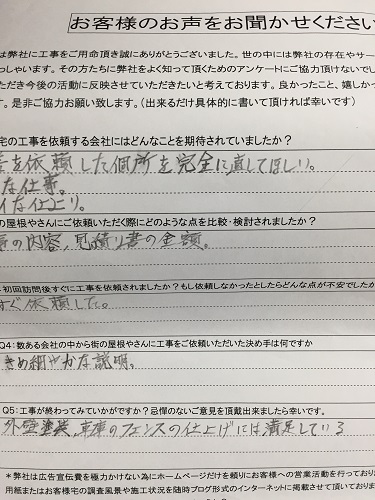 お客様のお声をお聞かせください
は弊社に工事をご用命頂き誠にありがとうございました。世の中には弊社の存在やサー
っしゃいます。その方たちに弊社をよく知って頂くためのアンケートにご協力頂けないでし
ただき今後の活動に反映させていただきたいと考えております。良かったこと、嬉しかっ
す。是非ご協力お願い致します。（出来るだけ具体的に書いて頂ければ幸いです）
宅の工事を依頼する会社にはどんなことを期待されていましたか？
を依頼した個所を完全に直してほしい。
な仕事。
イな仕上り。
の屋根やさんにご依頼いただく際にどのような点を比較・検討されましたか？
の内容、見積り書の金額。
初回訪問後すぐに工事を依頼されましたか？もし依頼しなかったとしたらどんな点が不安でしたか
すぐ依頼した。
Q4：数ある会社の中から街の屋根やさんに工事をご依頼いただいた決め手は何ですか
きめ細やかな説明。
Q5：工事が終わってみていかがですか？忌憚のないご意見を頂戴出来ましたら幸いです。
外壁塗装、車庫のフェンスの仕上げには満足している
＊弊社は広告宣伝費を極力かけない為にホームページだけを頼りにお客様への営業活動を行ってお
用紙またはお客様宅の調査風景や施工状況を随時ブログ形式のインターネットに掲載させて頂いてお